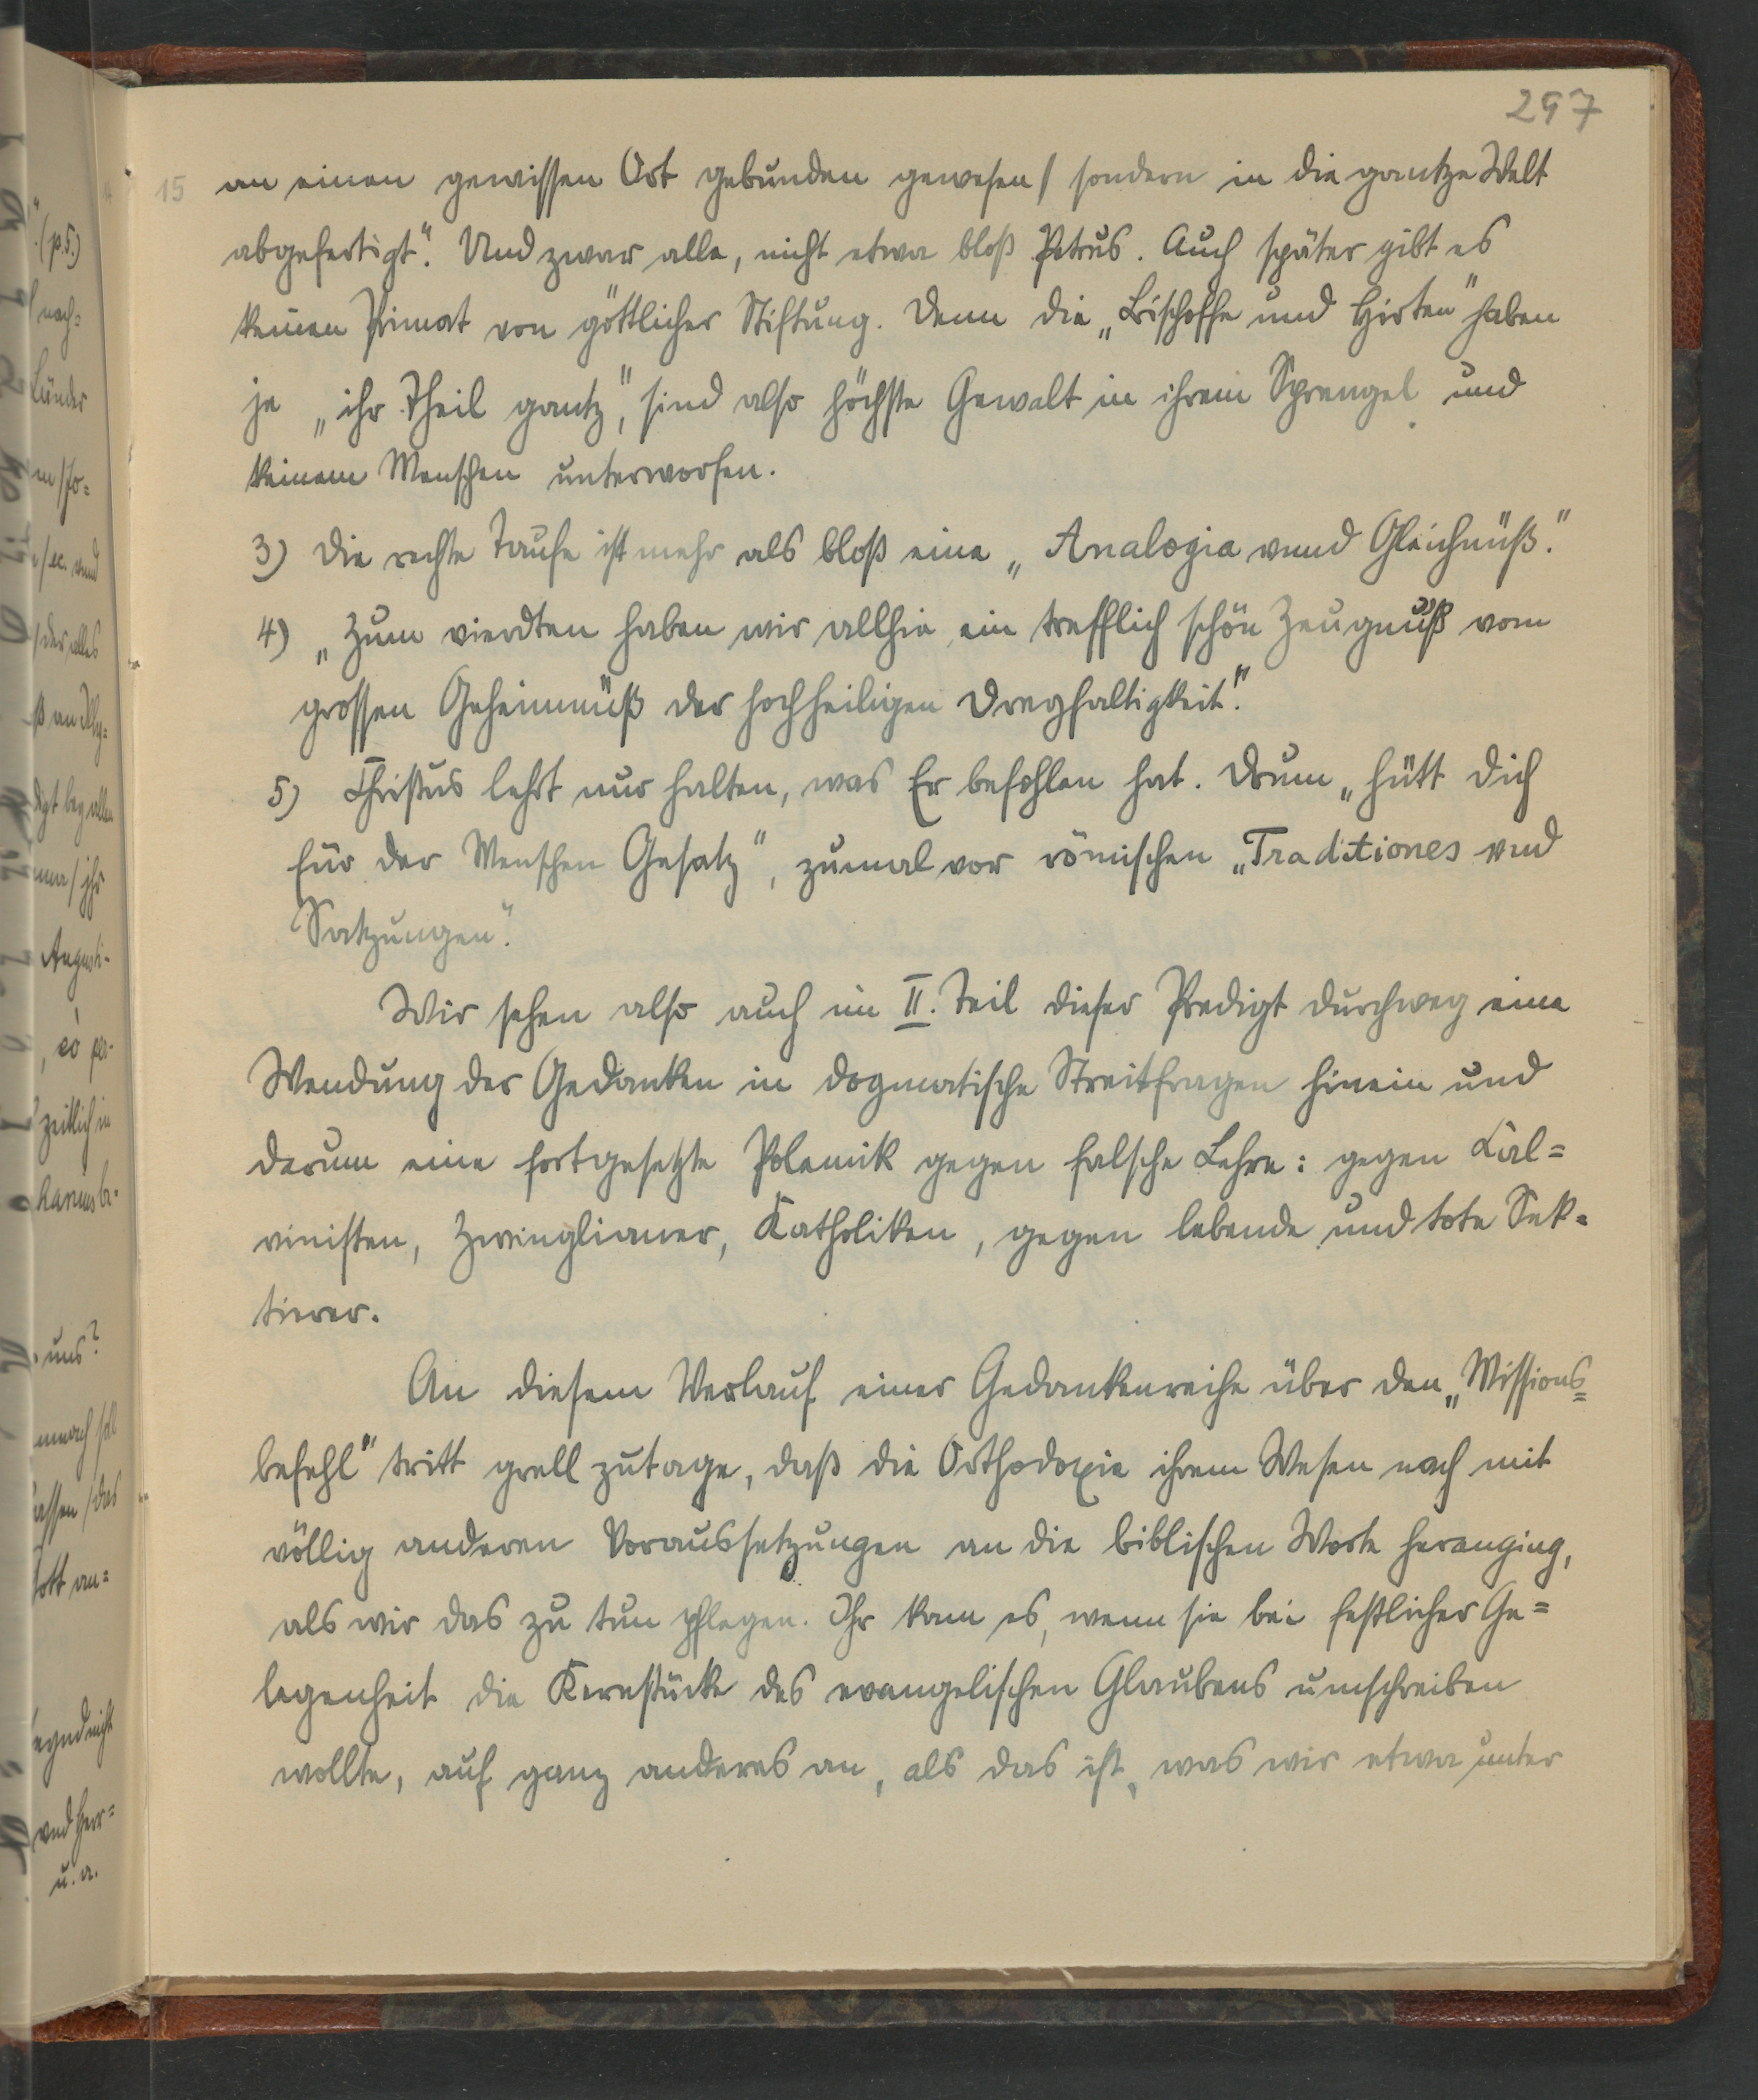 297
15 an einen gewissen Ort gebunden gewesen / sondern in die gantze Welt
abgefertigt“. Und zwar alle, nicht etwa bloß Petrus. Auch später gibt es
keinen Primat von göttlicher Stiftung. Denn die „Bischoffe und Hirten“ haben
je „ihr Theil gantz“, sind also höchste Gewalt in ihrem Sprengel und
keinem Menschen unterworfen.
3) Die rechte Taufe ist mehr als bloß eine „Analogia vnnd Gleichnüß“.
4) „Zum vierdten haben wir allhie ein trefflich schön Zeugnüß vom
grossen Geheimnüß der hochheiligen Dreyfaltigkeit“.
5) Christus lehrt nur halten, was Er befohlen hat. Drum „hütt dich
für der Menschen Gesatz“, zumal vor römischen „Traditiones vnd
Satzungen“.
Wir sehen also auch im II. Teil dieser Predigt durchweg eine
Wendung der Gedanken in dogmatische Streitfragen hinein und
darum eine fortgesetzte Polemik gegen falsche Lehre: gegen Cal=
vinisten, Zwinglianer, Katholiken, gegen lebende und tote Sek=
tierer.
An diesem Verlauf einer Gedankenreihe über den „Missions=
befehl“ tritt grell zutage, daß die Orthodoxie ihrem Wesen nach mit
völlig anderen Voraussetzungen an die biblischen Worte heranging,
als wir das zu tun pflegen. Ihr kam es, wenn sie bei festlicher Ge=
legenheit die Kernstücke des evangelischen Glaubens umschreiben
wollte, auf ganz anderes an, als das ist, was wir etwa unter